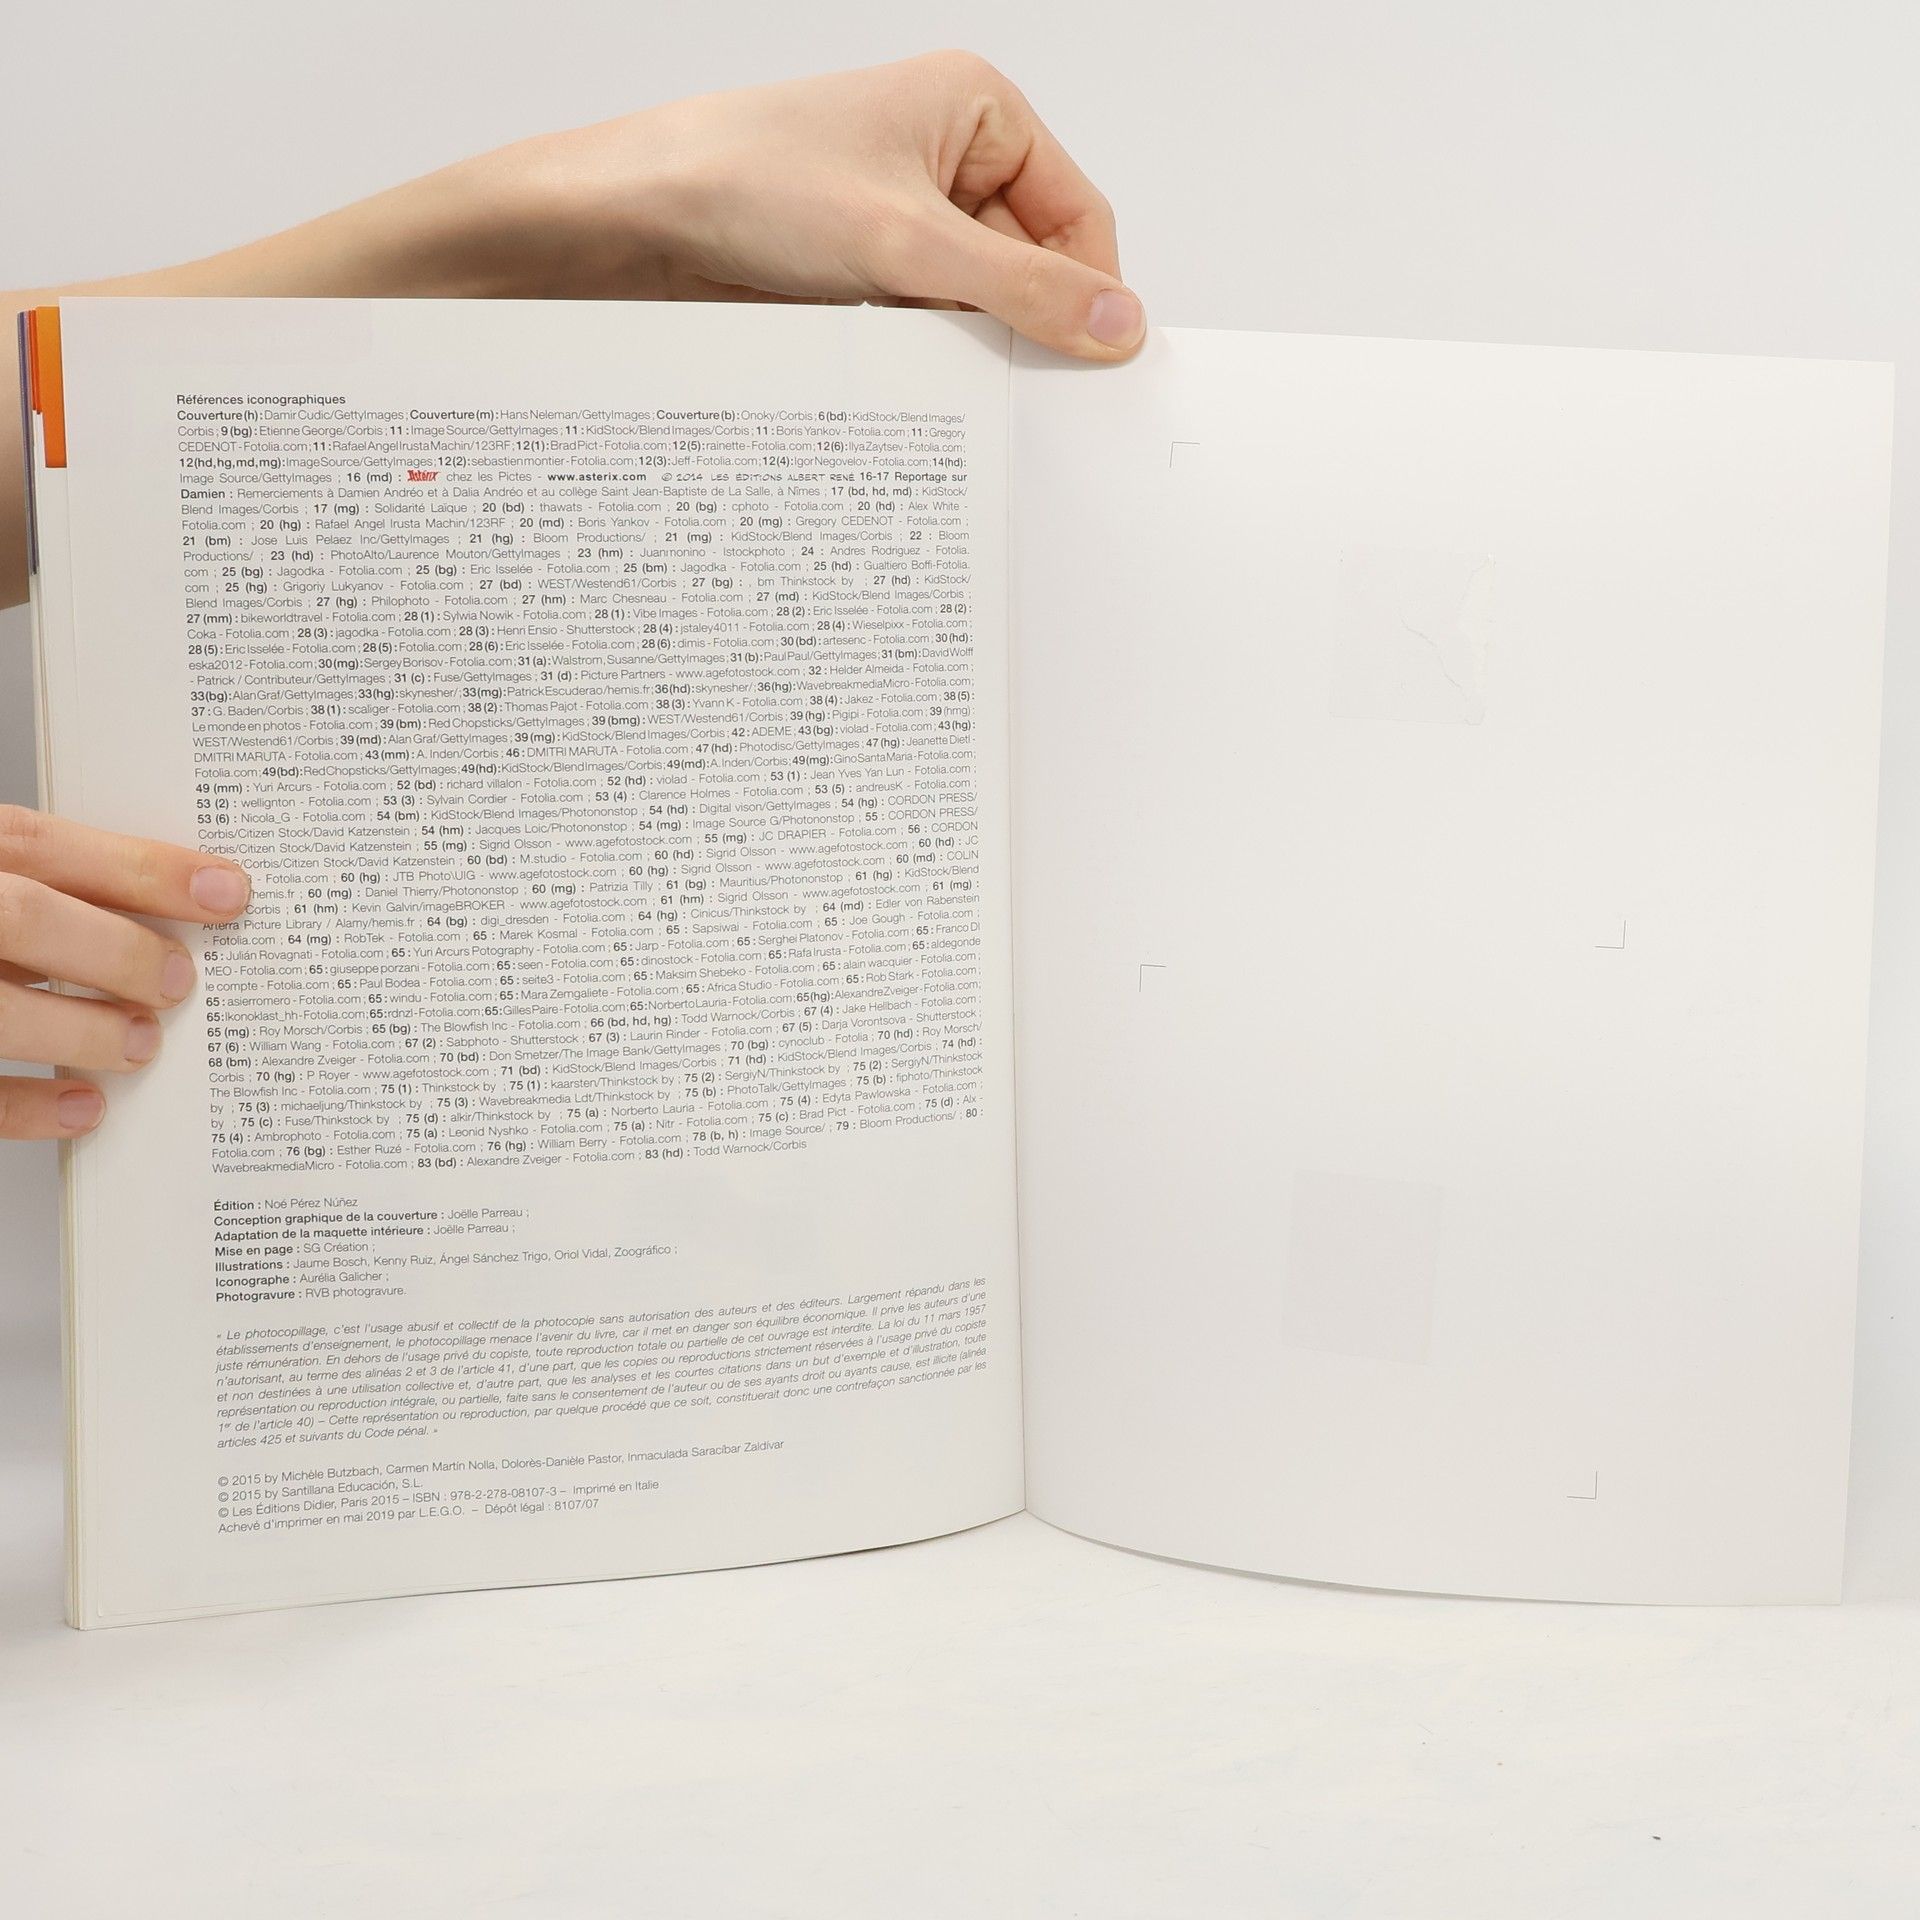 Références iconographiques
Couverture (h) : Damir Cudic/GettyImages ; Couverture (m) : Hans Neleman/GettyImages ; Couverture (b) : Onoky/Corbis ; 6 (bd) : KidStock/Blend Images/
Corbis ; 9 (bg) : Etienne George/Corbis ; 11 : Image Source/GettyImages ; 11 : KidStock/Blend Images/Corbis ; 11 : Boris Yankov - Fotolia.com ; 11 : Gregory
CEDENOT - Fotolia.com ; 11 : Rafael Angel Irusta Machin/123RF ; 12 (1) : Brad Pict - Fotolia.com ; 12 (5) : rainette - Fotolia.com ; 12 (6) : Ilya Zaytsev - Fotolia.com ;
12 (hd, hg, md, mg) : Image Source/GettyImages ; 12 (2) : sebastien montier - Fotolia.com ; 12 (3) : Jeff - Fotolia.com ; 12 (4) : Igor Negovelov - Fotolia.com ; 14 (hd) :
Image Source/GettyImages ; 16 (md) : Astérix chez les Pictes - www.asterix.com © 2014 LES ÉDITIONS ALBERT RENÉ 16-17 Reportage sur
Damien : Remerciements à Damien Andréo et à Dalia Andréo et au collège Saint Jean-Baptiste de La Salle, à Nîmes ; 17 (bd, hd, md) : KidStock/
Blend Images/Corbis ; 17 (mg) : Solidarité Laïque ; 20 (bd) : thawats - Fotolia.com ; 20 (bg) : cphoto - Fotolia.com ; 20 (hd) : Alex White -
Fotolia.com ; 20 (hg) : Rafael Angel Irusta Machin/123RF ; 20 (md) : Boris Yankov - Fotolia.com ; 20 (mg) : Gregory CEDENOT - Fotolia.com ;
21 (bm) : Jose Luis Pelaez Inc/GettyImages ; 21 (hg) : Bloom Productions/ ; 21 (mg) : KidStock/Blend Images/Corbis ; 22 : Bloom
Productions/ ; 23 (hd) : PhotoAlto/Laurence Mouton/GettyImages ; 23 (hm) : Juanmonino - Istockphoto ; 24 : Andres Rodriguez - Fotolia.
com ; 25 (bg) : Jagodka - Fotolia.com ; 25 (bg) : Eric Isselée - Fotolia.com ; 25 (bm) : Jagodka - Fotolia.com ; 25 (hd) : Gualtiero Boffi-Fotolia.
com ; 25 (hg) : Grigoriy Lukyanov - Fotolia.com ; 27 (bd) : WEST/Westend61/Corbis ; 27 (bg) : , bm Thinkstock by ; 27 (hd) : KidStock/
Blend Images/Corbis ; 27 (hg) : Philophoto - Fotolia.com ; 27 (hm) : Marc Chesneau - Fotolia.com ; 27 (md) : KidStock/Blend Images/Corbis ;
27 (mm) : bikeworldtravel - Fotolia.com ; 28 (1) : Sylwia Nowik - Fotolia.com ; 28 (1) : Vibe Images - Fotolia.com ; 28 (2) : Eric Isselée - Fotolia.com ; 28 (2) :
Coka - Fotolia.com ; 28 (3) : jagodka - Fotolia.com ; 28 (3) : Henri Ensio - Shutterstock ; 28 (4) : jstaley4011 - Fotolia.com ; 28 (4) : Wieselpixx - Fotolia.com ;
28 (5) : Eric Isselée - Fotolia.com ; 28 (5) : Fotolia.com ; 28 (6) : Eric Isselée - Fotolia.com ; 28 (6) : dimis - Fotolia.com ; 30 (bd) : artesenc - Fotolia.com ; 30 (hd) :
eska2012 - Fotolia.com ; 30 (mg) : Sergey Borisov - Fotolia.com ; 31 (a) : Walstrom, Susanne/GettyImages ; 31 (b) : Paul Paul/GettyImages ; 31 (bm) : David Wolff
- Patrick / Contributeur/GettyImages ; 31 (c) : Fuse/GettyImages ; 31 (d) : Picture Partners - www.agefotostock.com ; 32 : Helder Almeida - Fotolia.com ;
33 (bg) : Alan Graf/GettyImages ; 33 (hg) : skynesher/ ; 33 (mg) : Patrick Escuderao/hemis.fr ; 36 (hd) : skynesher/ ; 36 (hg) : WavebreakmediaMicro - Fotolia.com ;
37 : G. Baden/Corbis ; 38 (1) : scaliger - Fotolia.com ; 38 (2) : Thomas Pajot - Fotolia.com ; 38 (3) : Yvann K - Fotolia.com ; 38 (4) : Jakez - Fotolia.com ; 38 (5) :
Le monde en photos - Fotolia.com ; 39 (bm) : Red Chopsticks/GettyImages ; 39 (bmg) : WEST/Westend61/Corbis ; 39 (hg) : Pigipi - Fotolia.com ; 39 (hmg) :
WEST/Westend61/Corbis ; 39 (md) : Alan Graf/GettyImages ; 39 (mg) : KidStock/Blend Images/Corbis ; 42 : ADEME ; 43 (bg) : violad - Fotolia.com ; 43 (hg) :
DMITRI MARUTA - Fotolia.com ; 43 (mm) : A. Inden/Corbis ; 46 : DMITRI MARUTA - Fotolia.com ; 47 (hd) : Photodisc/GettyImages ; 47 (hg) : Jeanette Dietl -
Fotolia.com ; 49 (bd) : Red Chopsticks/GettyImages ; 49 (hd) : KidStock/Blend Images/Corbis ; 49 (md) : A. Inden/Corbis ; 49 (mg) : Gino Santa Maria - Fotolia.com ;
49 (mm) : Yuri Arcurs - Fotolia.com ; 52 (bd) : richard villalon - Fotolia.com ; 52 (hd) : violad - Fotolia.com ; 53 (1) : Jean Yves Yan Lun - Fotolia.com ;
53 (2) : wellignton - Fotolia.com ; 53 (3) : Sylvain Cordier - Fotolia.com ; 53 (4) : Clarence Holmes - Fotolia.com ; 53 (5) : andreusK - Fotolia.com ;
53 (6) : Nicola_G - Fotolia.com ; 54 (bm) : KidStock/Blend Images/Photononstop ; 54 (hd) : Digital vison/GettyImages ; 54 (hg) : CORDON PRESS/
Corbis/Citizen Stock/David Katzenstein ; 54 (hm) : Jacques Loic/Photononstop ; 54 (mg) : Image Source G/Photononstop ; 55 : CORDON PRESS/
Corbis/Citizen Stock/David Katzenstein ; 55 (mg) : Sigrid Olsson - www.agefotostock.com ; 55 (mg) : JC DRAPIER - Fotolia.com ; 56 : CORDON
S/Corbis/Citizen Stock/David Katzenstein ; 60 (bd) : M.studio - Fotolia.com ; 60 (hd) : Sigrid Olsson - www.agefotostock.com ; 60 (hd) : JC
- Fotolia.com ; 60 (hg) : JTB Photo\UIG - www.agefotostock.com ; 60 (hg) : Sigrid Olsson - www.agefotostock.com ; 60 (md) : COLIN
/hemis.fr ; 60 (mg) : Daniel Thierry/Photononstop ; 60 (mg) : Patrizia Tilly ; 61 (bg) : Mauritius/Photononstop ; 61 (hg) : KidStock/Blend
Corbis ; 61 (hm) : Kevin Galvin/imageBROKER - www.agefotostock.com ; 61 (hm) : Sigrid Olsson - www.agefotostock.com ; 61 (mg) :
Arterra Picture Library / Alamy/hemis.fr ; 64 (bg) : digi_dresden - Fotolia.com ; 64 (hg) : Cinicus/Thinkstock by ; 64 (md) : Edler von Rabenstein
- Fotolia.com ; 64 (mg) : RobTek - Fotolia.com ; 65 : Marek Kosmal - Fotolia.com ; 65 : Sapsiwai - Fotolia.com ; 65 : Joe Gough - Fotolia.com ;
65 : Julián Rovagnati - Fotolia.com ; 65 : Yuri Arcurs Potography - Fotolia.com ; 65 : Jarp - Fotolia.com ; 65 : Serghei Platonov - Fotolia.com ; 65 : Franco DI
MEO - Fotolia.com ; 65 : giuseppe porzani - Fotolia.com ; 65 : seen - Fotolia.com ; 65 : dinostock - Fotolia.com ; 65 : Rafa Irusta - Fotolia.com ; 65 : aldegonde
le compte - Fotolia.com ; 65 : Paul Bodea - Fotolia.com ; 65 : seite3 - Fotolia.com ; 65 : Maksim Shebeko - Fotolia.com ; 65 : alain wacquier - Fotolia.com ;
65 : asierromero - Fotolia.com ; 65 : windu - Fotolia.com ; 65 : Mara Zemgaliete - Fotolia.com ; 65 : Africa Studio - Fotolia.com ; 65 : Rob Stark - Fotolia.com ;
65 : Ikonoklast_hh - Fotolia.com ; 65 : rdnzl - Fotolia.com ; 65 : Gilles Paire - Fotolia.com ; 65 : Norberto Lauria - Fotolia.com ; 65 (hg) : Alexandre Zveiger - Fotolia.com ;
65 (mg) : Roy Morsch/Corbis ; 65 (bg) : The Blowfish Inc - Fotolia.com ; 66 (bd, hd, hg) : Todd Warnock/Corbis ; 67 (4) : Jake Hellbach - Fotolia.com ;
67 (6) : William Wang - Fotolia.com ; 67 (2) : Sabphoto - Shutterstock ; 67 (3) : Laurin Rinder - Fotolia.com ; 67 (5) : Darja Vorontsova - Shutterstock ;
68 (bm) : Alexandre Zveiger - Fotolia.com ; 70 (bd) : Don Smetzer/The Image Bank/GettyImages ; 70 (bg) : cynoclub - Fotolia ; 70 (hd) : Roy Morsch/
Corbis ; 70 (hg) : P Royer - www.agefotostock.com ; 71 (bd) : KidStock/Blend Images/Corbis ; 71 (hd) : KidStock/Blend Images/Corbis ; 74 (hd) :
The Blowfish Inc - Fotolia.com ; 75 (1) : Thinkstock by ; 75 (1) : kaarsten/Thinkstock by ; 75 (2) : SergiyN/Thinkstock by ; 75 (2) : SergiyN/Thinkstock
by ; 75 (3) : michaeljung/Thinkstock by ; 75 (3) : Wavebreakmedia Ldt/Thinkstock by ; 75 (b) : PhotoTalk/GettyImages ; 75 (b) : fiphoto/Thinkstock
by ; 75 (c) : Fuse/Thinkstock by ; 75 (d) : alkir/Thinkstock by ; 75 (a) : Norberto Lauria - Fotolia.com ; 75 (4) : Edyta Pawlowska - Fotolia.com ;
75 (4) : Ambrophoto - Fotolia.com ; 75 (a) : Leonid Nyshko - Fotolia.com ; 75 (a) : Nitr - Fotolia.com ; 75 (c) : Brad Pict - Fotolia.com ; 75 (d) : Alx -
Fotolia.com ; 76 (bg) : Esther Ruzé - Fotolia.com ; 76 (hg) : William Berry - Fotolia.com ; 78 (b, h) : Image Source/ ; 79 : Bloom Productions/ ; 80 :
WavebreakmediaMicro - Fotolia.com ; 83 (bd) : Alexandre Zveiger - Fotolia.com ; 83 (hd) : Todd Warnock/Corbis
Édition : Noé Pérez Núñez
Conception graphique de la couverture : Joëlle Parreau ;
Adaptation de la maquette intérieure : Joëlle Parreau ;
Mise en page : SG Création ;
Illustrations : Jaume Bosch, Kenny Ruiz, Ángel Sánchez Trigo, Oriol Vidal, Zoográfico ;
Iconographe : Aurélia Galicher ;
Photogravure : RVB photogravure.
« Le photocopillage, c'est l'usage abusif et collectif de la photocopie sans autorisation des auteurs et des éditeurs. Largement répandu dans les
établissements d'enseignement, le photocopillage menace l'avenir du livre, car il met en danger son équilibre économique. Il prive les auteurs d'une
juste rémunération. En dehors de l'usage privé du copiste, toute reproduction totale ou partielle de cet ouvrage est interdite. La loi du 11 mars 1957
n'autorisant, au terme des alinéas 2 et 3 de l'article 41, d'une part, que les copies ou reproductions strictement réservées à l'usage privé du copiste
et non destinées à une utilisation collective et, d'autre part, que les analyses et les courtes citations dans un but d'exemple et d'illustration, toute
représentation ou reproduction intégrale, ou partielle, faite sans le consentement de l'auteur ou de ses ayants droit ou ayants cause, est illicite (alinéa
1er de l'article 40) – Cette représentation ou reproduction, par quelque procédé que ce soit, constituerait donc une contrefaçon sanctionnée par les
articles 425 et suivants du Code pénal. »
© 2015 by Michèle Butzbach, Carmen Martín Nolla, Dolorès-Danièle Pastor, Inmaculada Saracíbar Zaldívar
© 2015 by Santillana Educación, S.L.
© Les Éditions Didier, Paris 2015 – ISBN : 978-2-278-08107-3 – Imprimé en Italie
Achevé d'imprimer en mai 2019 par L.E.G.O. – Dépôt légal : 8107/07